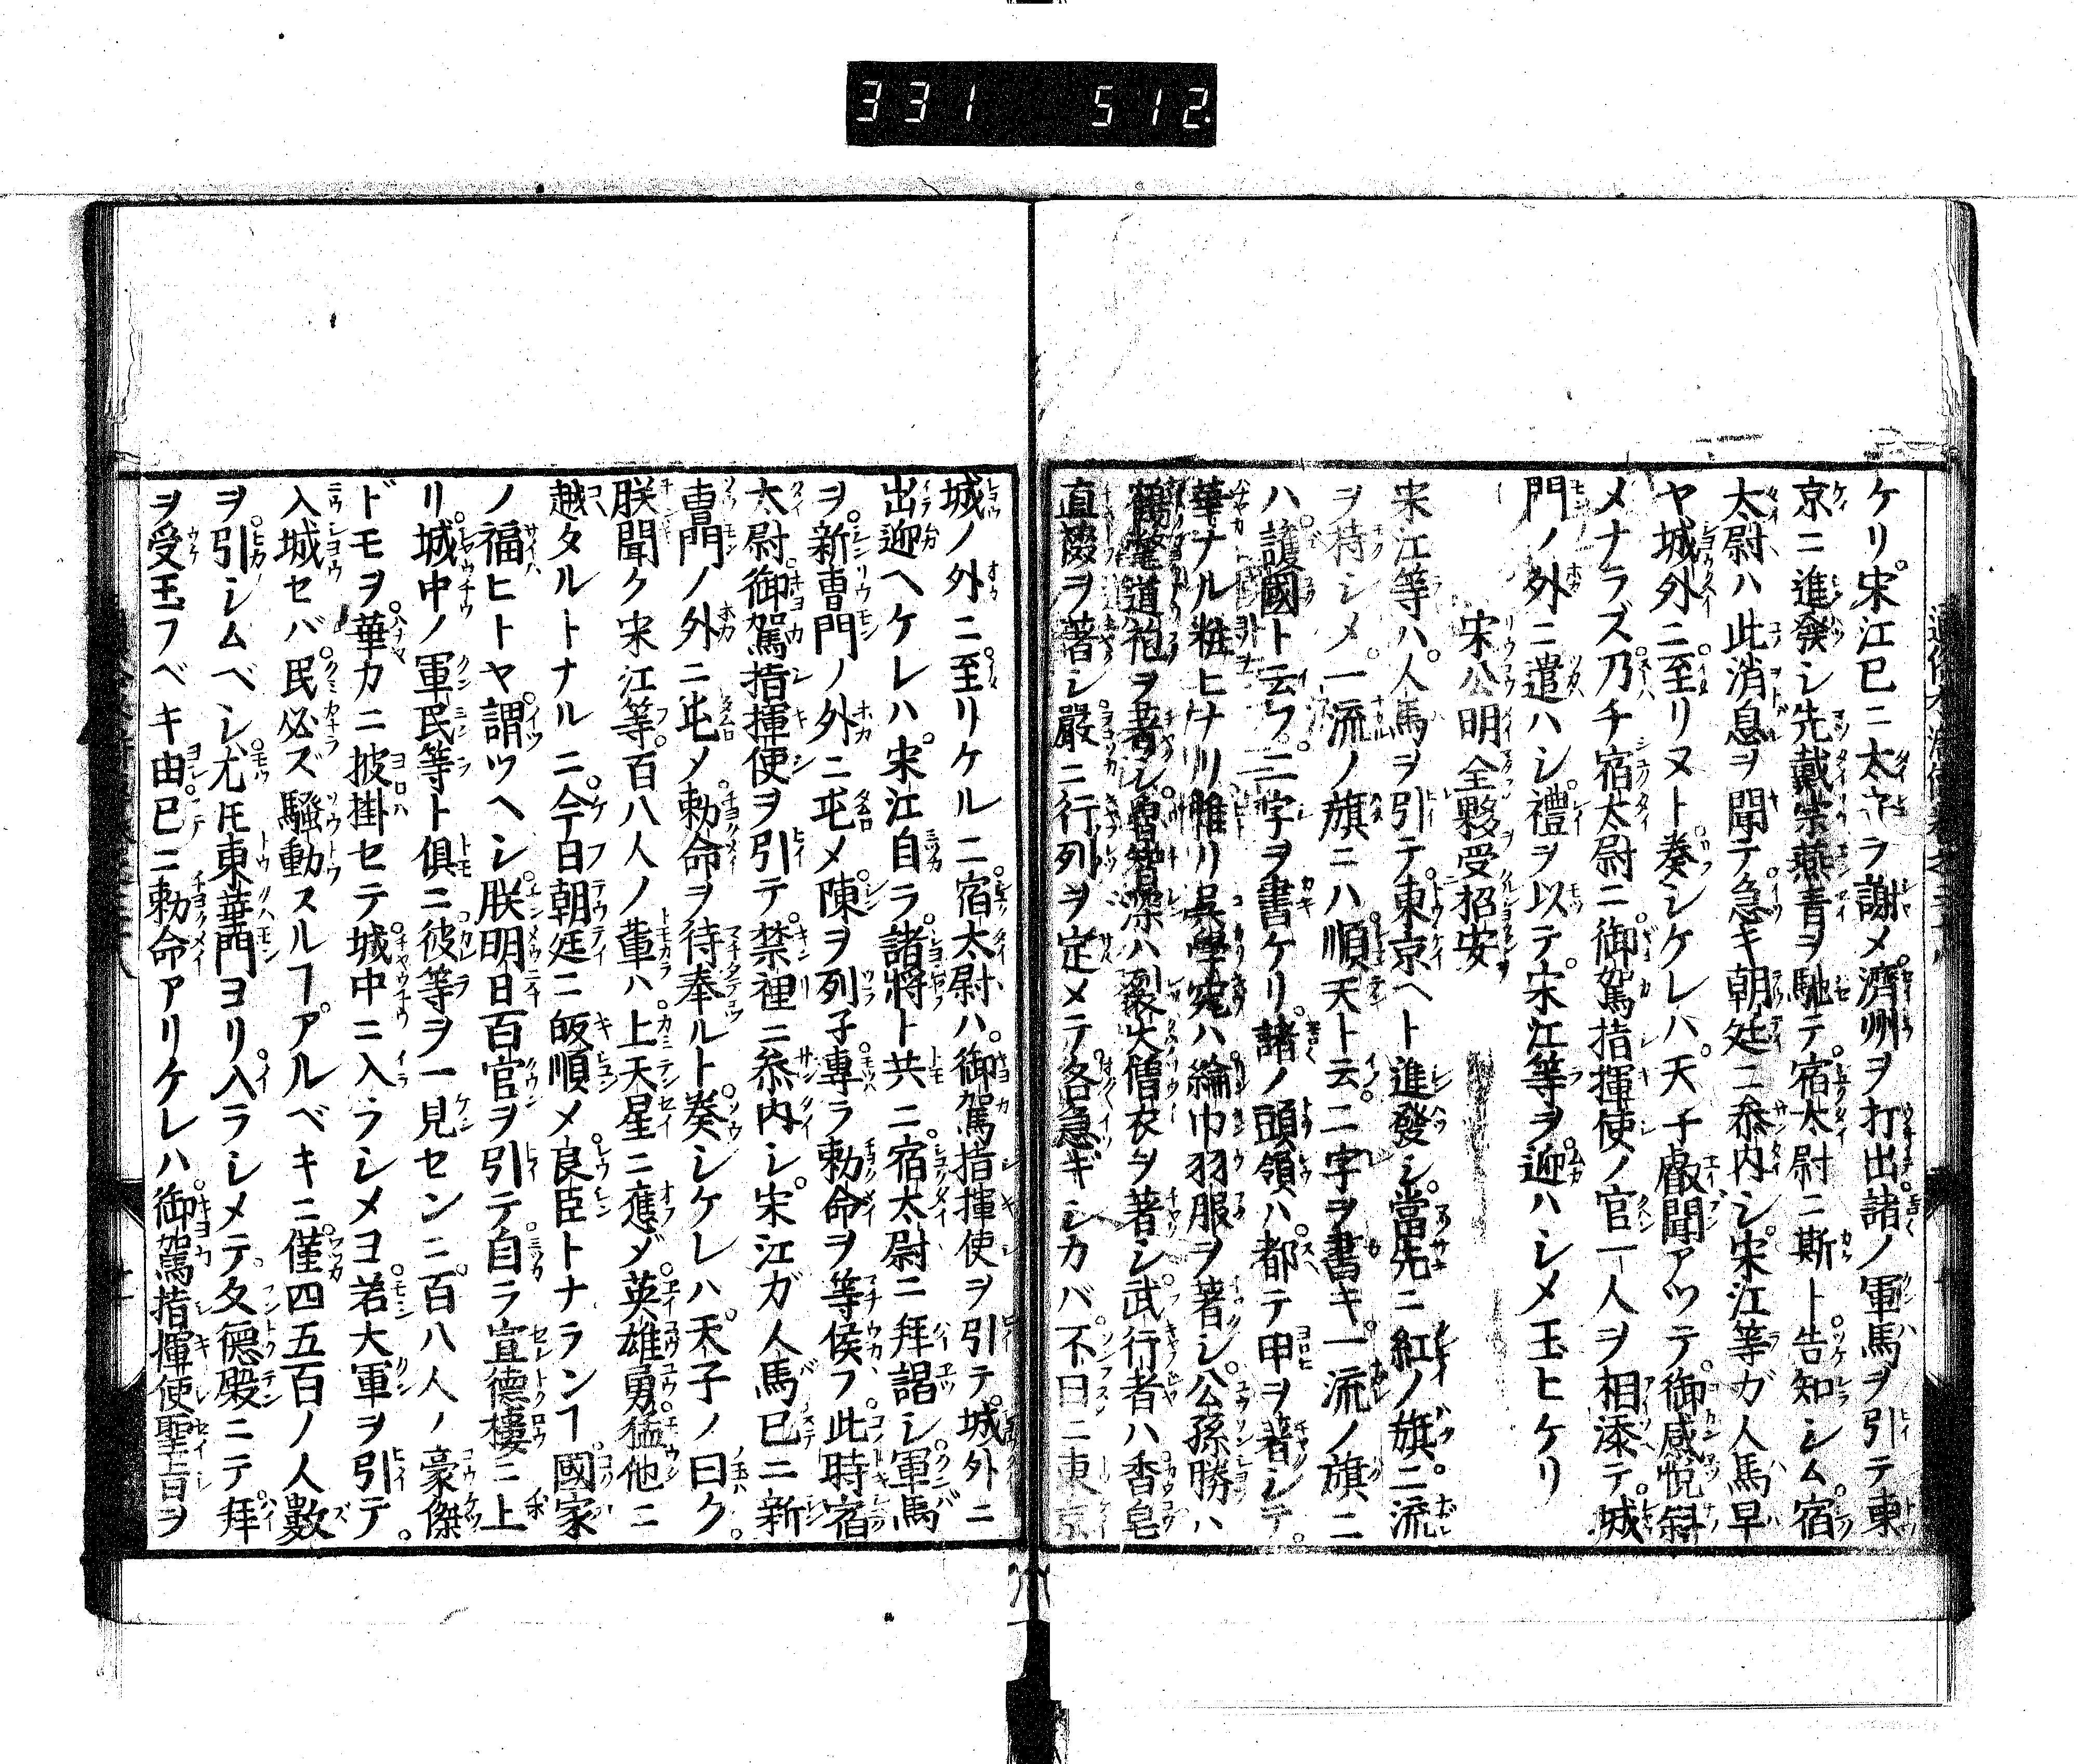 331 512
ケリ。宋江已ニ太守ヲ謝メ。濟州ヲ打出。諸ノ軍馬ヲ引テ東
京ニ進發シ先戴宗燕青ヲ馳テ。宿太尉ニ斯ト告知シム宿
太尉ハ此消息ヲ聞テ。急キ朝廷ニ叅内シ。宋江等ガ人馬早
ヤ城外ニ至リヌト奏シケレハ。天子叡聞アツテ。御感悦斜
メナラズ乃チ宿太尉ニ御駕指揮使ノ官一人ヲ相添テ。城
門ノ外ニ遣ハシ。禮ヲ以テ。宋江等ヲ迎ハシメ玉ヒケリ
宋公明全夥受招安
宋江等ハ。人馬ヲ引テ。東京ヘト進發シ。當先ニ紅ノ旗。二流
ヲ持シメ。一流ノ旗ニハ順天ト云。二字ヲ書キ。一流ノ旗ニ
ハ。護國ト云フ。二字ヲ書ケリ。諸ノ頭領ハ。都テ甲ヲ著シテ。
華ナル粧ヒナリ惟リ呉學究ハ綸巾羽服ヲ著シ。公孫勝ハ
鶴氅道袍ヲ著シ。魯智深ハ烈火僧衣ヲ著シ武行者ハ香皂
直裰ヲ著シ嚴ニ行列ヲ定メテ。各急ギシカバ不日ニ東京
城ノ外ニ至リケルニ。宿太尉ハ。御駕指揮使ヲ引テ。城外ニ
出迎ヘケレハ。宋江自ラ。諸將ト共ニ。宿太尉ニ拜謁シ。軍馬
ヲ。新曹門ノ外ニ屯メ。陳ヲ列子。專ラ勅命ヲ等侯フ。此時宿
太尉御駕指揮使ヲ引テ。禁裡ニ叅内シ。宋江ガ人馬已ニ新
曹門ノ外ニ屯メ。勅命ヲ待奉ルト。奏シケレハ。天子ノ曰ク。
朕聞ク宋江等。百八人ノ輩ハ。上天星ニ應ゾ。英雄勇猛他ニ
越タルトナルニ。今日朝廷ニ皈順メ。良臣トナランヿ國家
ノ福ヒトヤ謂ツヘシ。朕明日百官ヲ引テ。自ラ宣德樓ニ上
リ。城中ノ軍民等ト俱ニ。彼等ヲ一見センニ。百八人ノ豪傑
ドモヲ。華カニ披掛セテ。城中ニ入ラシメヨ。若大軍ヲ引テ。
入城セバ。民必ズ騷動スルヿアルベキニ。僅四五百ノ人數
ヲ。引シムベシ。尤𪜈東華門ヨリ。入ラシメテ。文德殿ニテ拜
ヲ受玉フベキ由。已ニ勅命アリケレハ。御駕指揮使聖旨ヲ